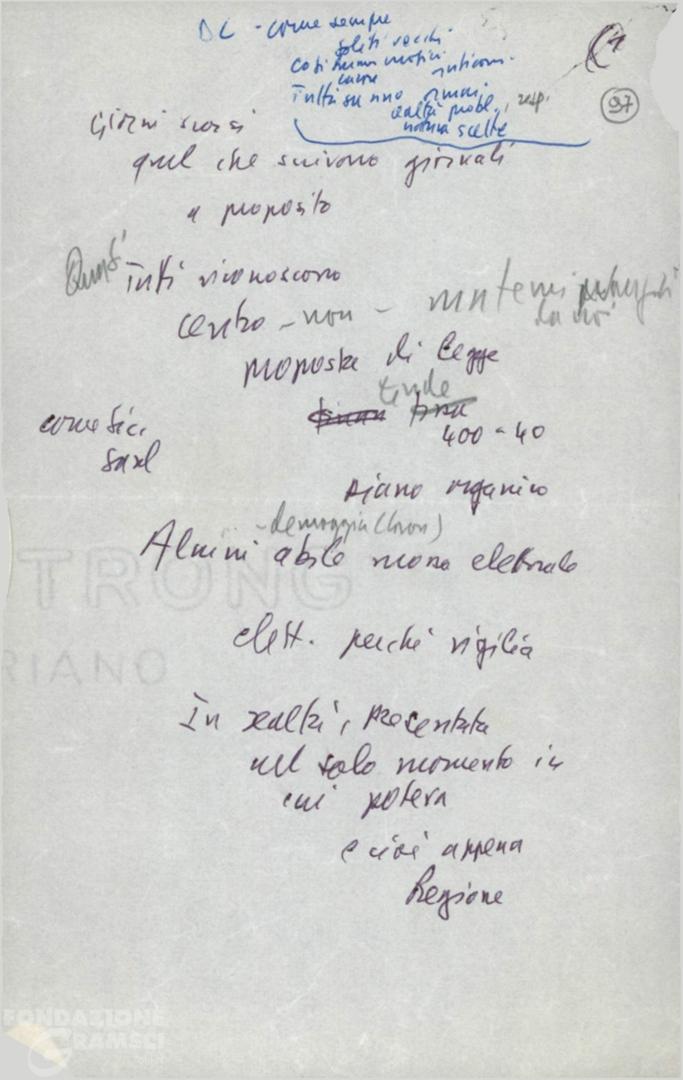 DC - come sempre
soliti vecchi
così
Tutti sanno ormai
realtà probl., resp.
nostra scelte
97
Giorni scorsi
quel che scrivono giornali
a proposito
Quasi Tutti riconoscono
centro - non -
da noi
proposta di legge
tende
400 - 40
come sici
piano organico
- demagogia (Loron)
Alcuni abile mossa elettorale
elett. perché vigilia
In realtà, presentata
nel solo momento in
cui poteva
e cioè appena
Regione
TRONG
RIANO
FONDAZIONE
GRAMSCI